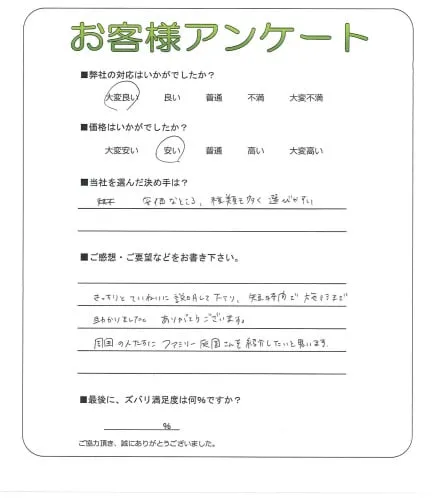 お客様アンケート
■弊社の対応はいかがでしたか?
大変良い 良い 普通 不満 大変不満
■価格はいかがでしたか?
大変安い 安い 普通 高い 大変高い
■当社を選んだ決め手は?
安価なところ、種類も多く選びやすい
■ご感想・ご要望などをお書き下さい。
きっちりとていねいに説明して下さり、短時間で施工まで
助かりました。ありがとうございます。
周囲の人たちにファミリー庭園さんを紹介したいと思います。
■最後に、ズバリ満足度は何%ですか?
%
ご協力頂き、誠にありがとうございました。